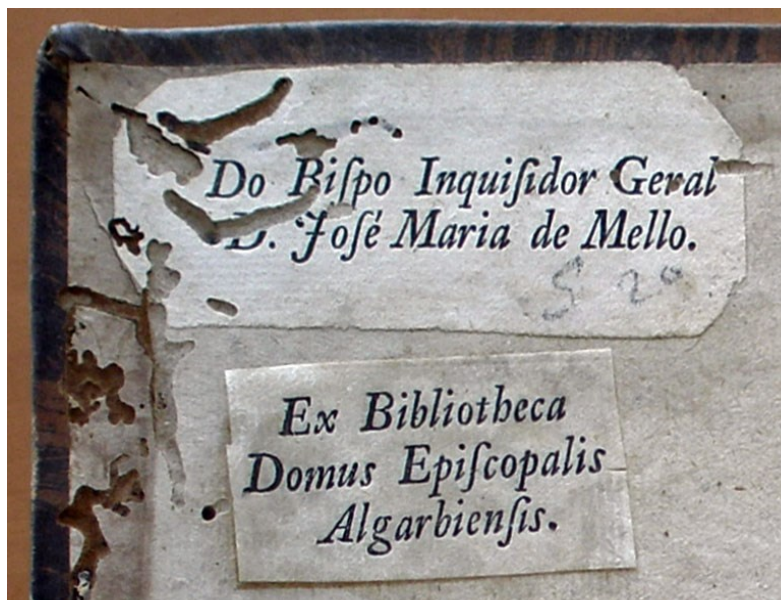 Do Biſpo Inquiſidor Geral
D. Joſé Maria de Mello.
S 20
Ex Bibliotheca
Domus Epiſcopalis
Algarbienſis.